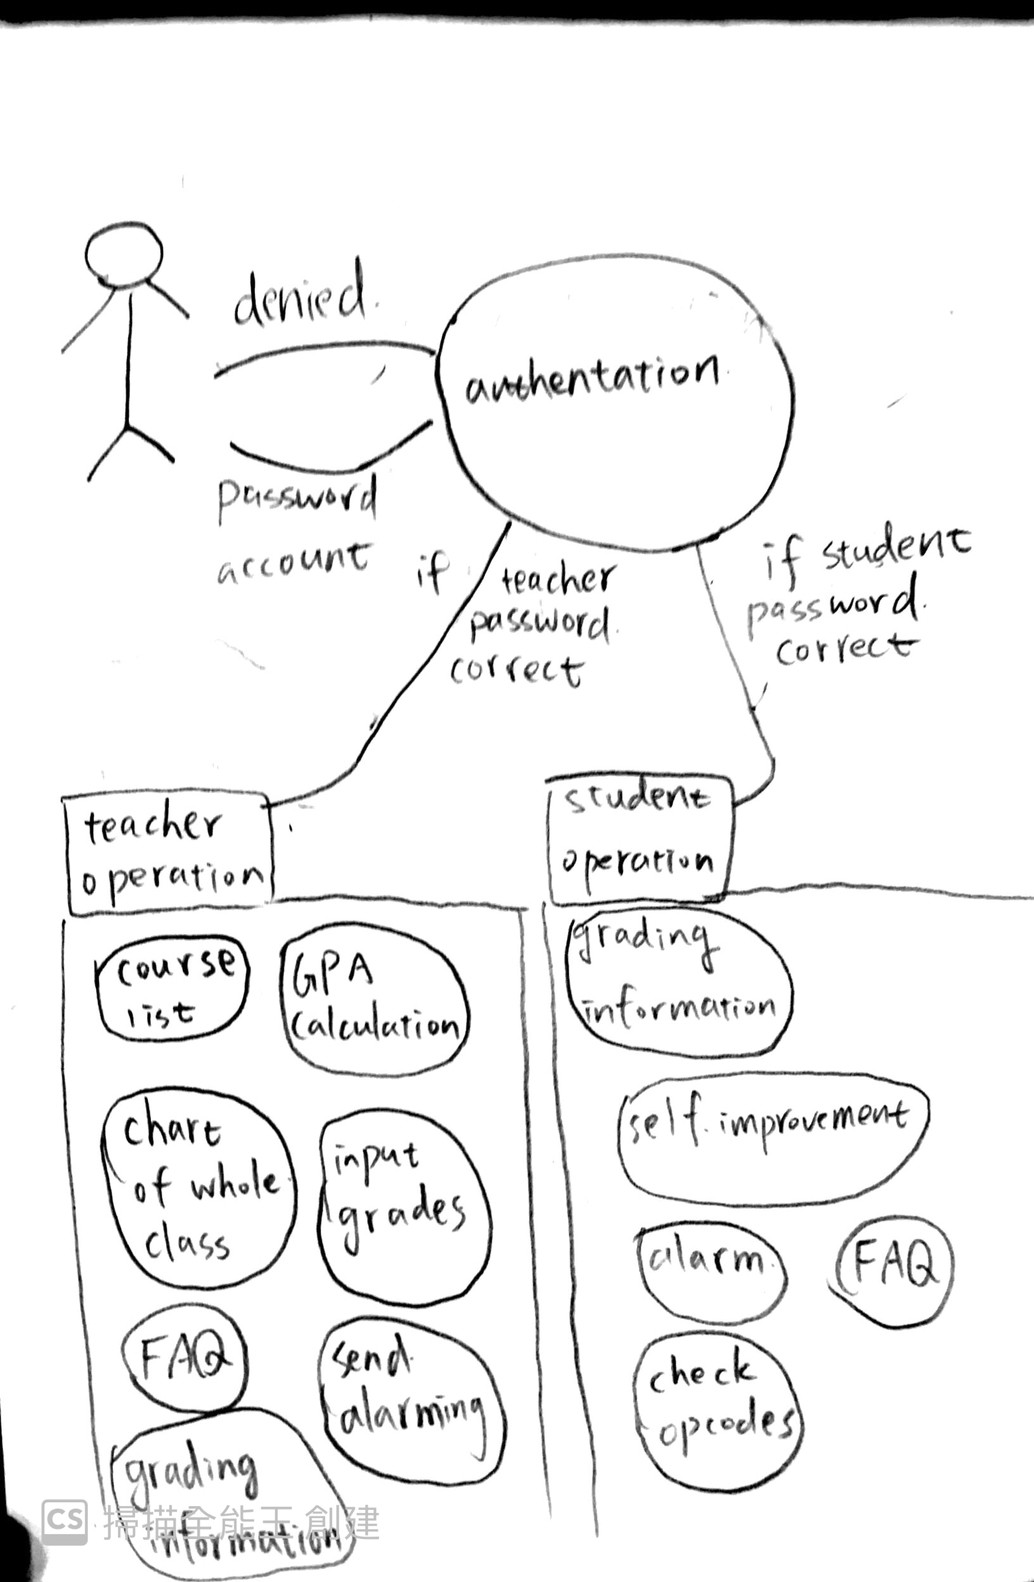 denied.
authentation
password
account
if teacher
password.
correct
if student
password.
correct
teacher
operation
student
operation
course
list
GPA
calculation
chart
of whole
class
input
grades
FAQ
send
alarming
grading
information
grading
information
self.improvement
alarm.
FAQ
check
opcodes
CS 掃描全能王 創建